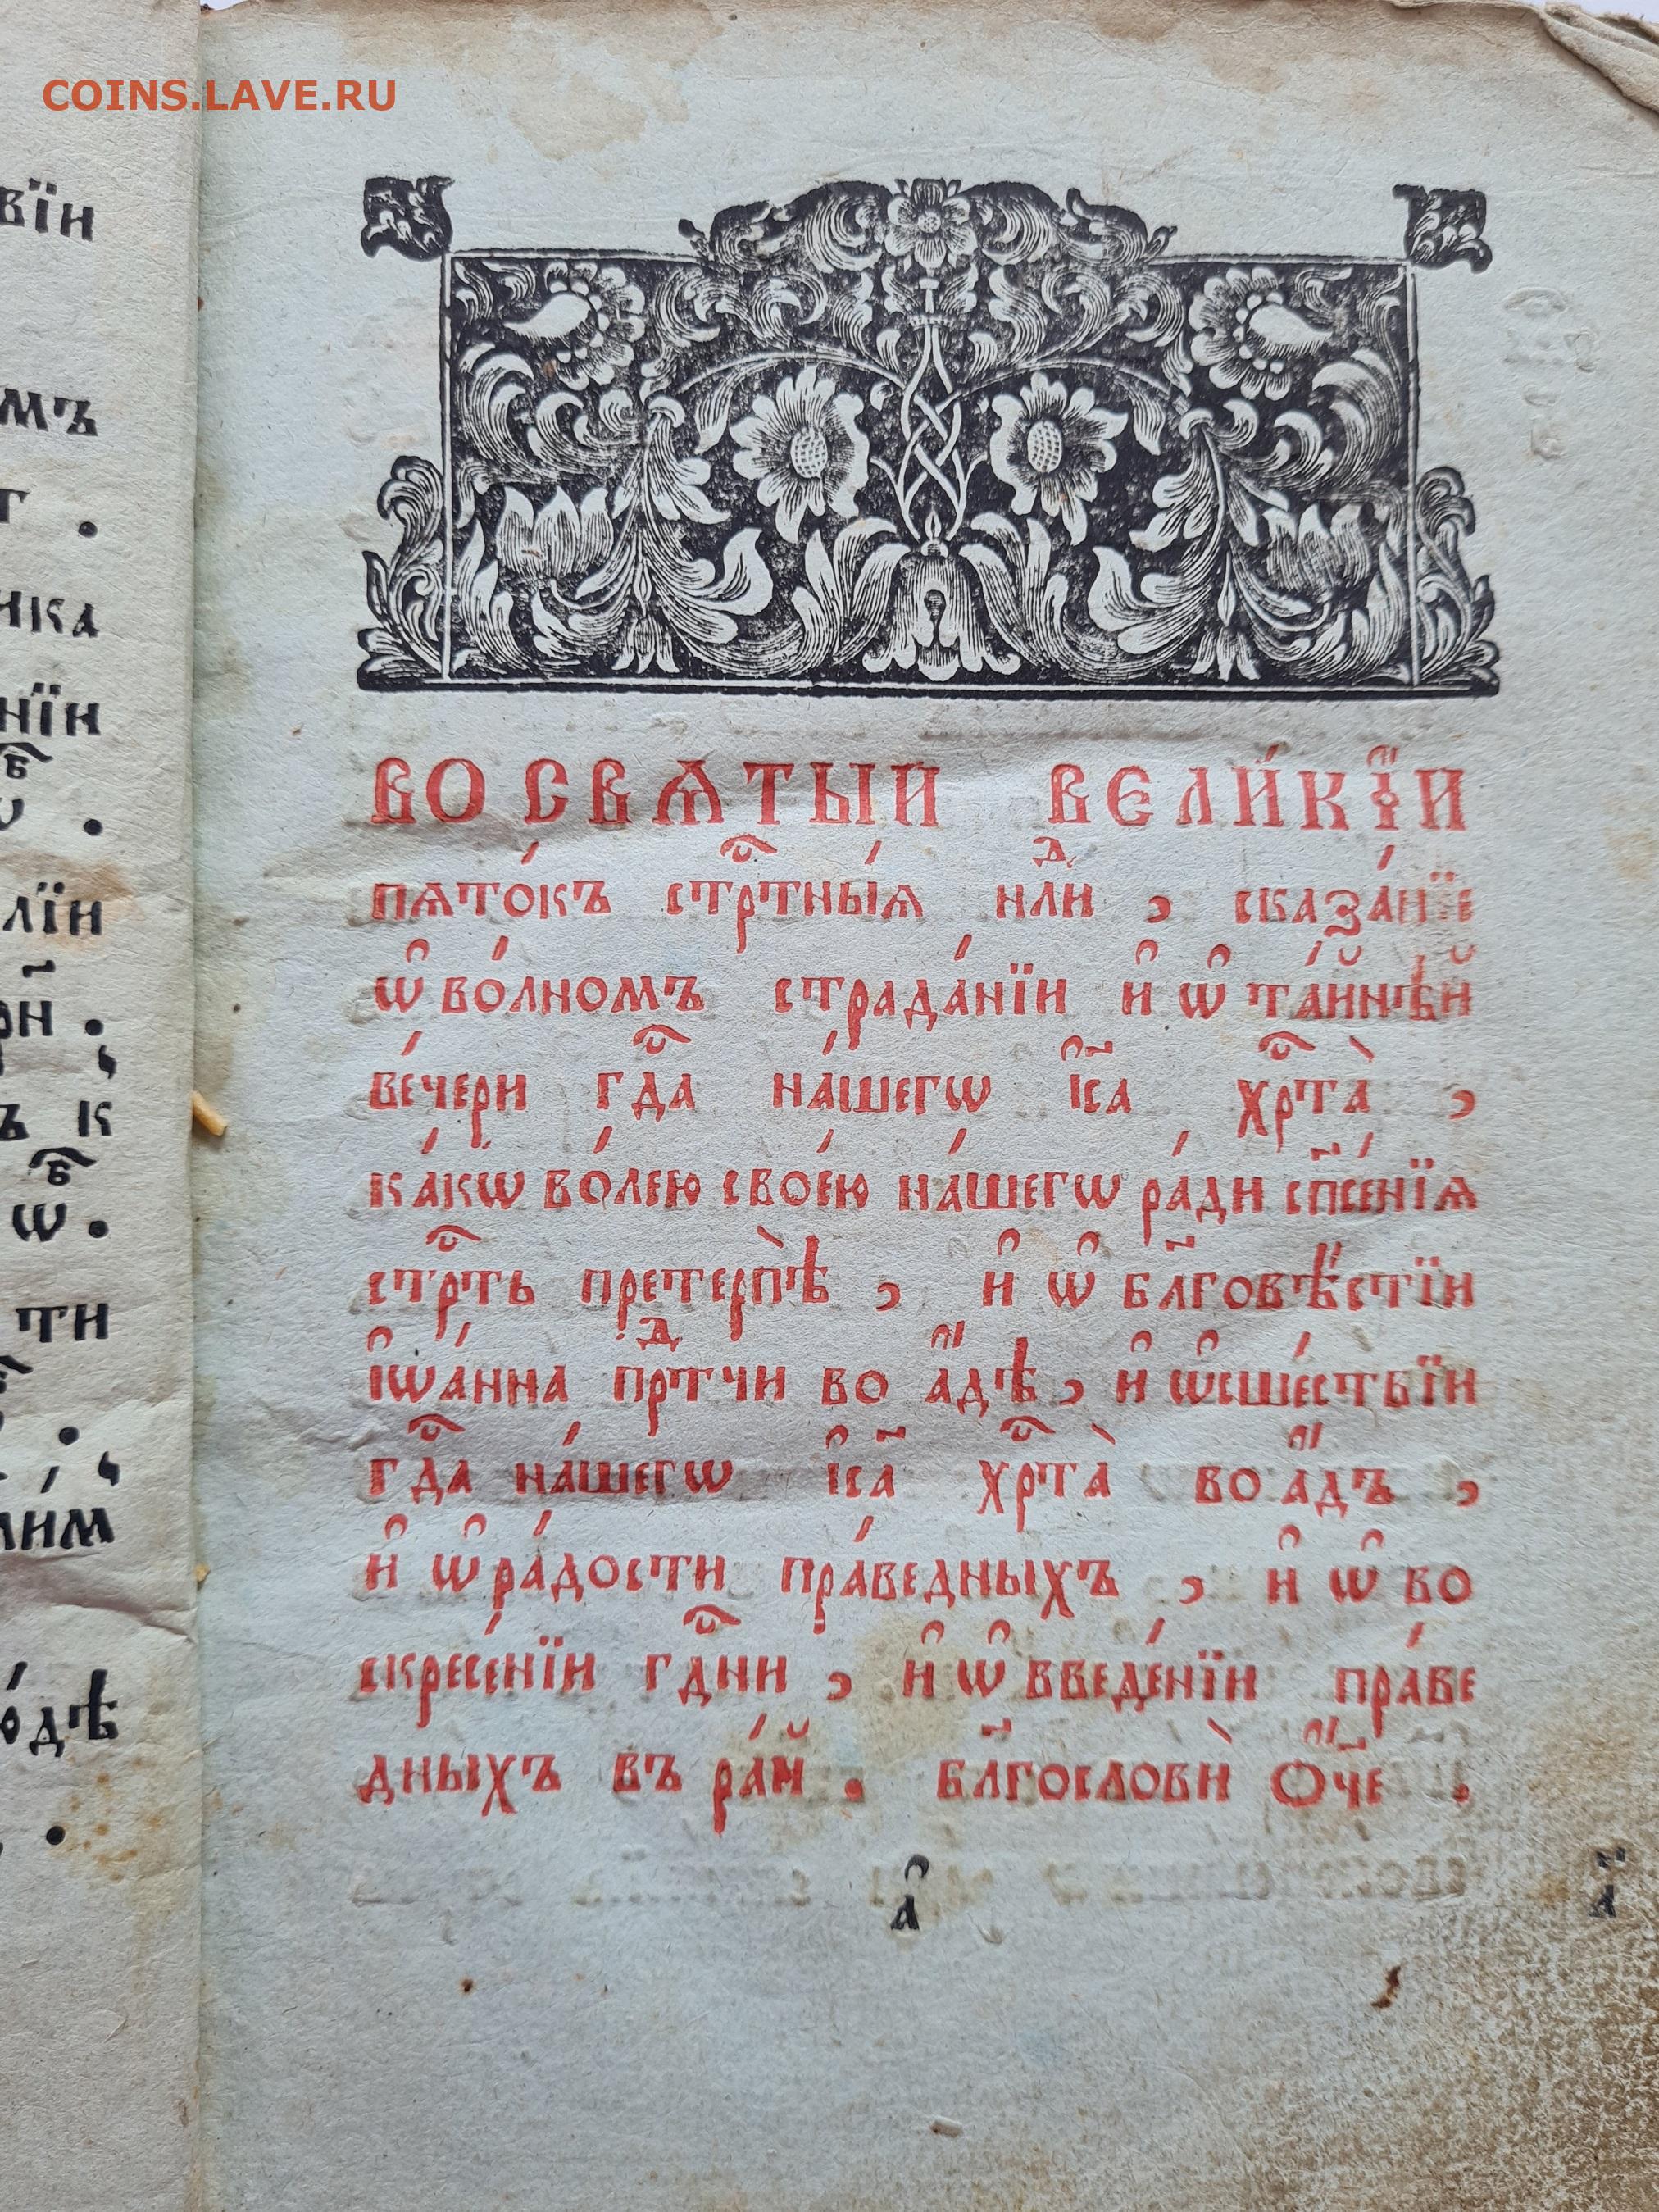 COINS.LAVE.RU
вїи
мъ
т .
ика
нїи
ѡ҃ .
лїи
ри .
ъ к
ѡ .
ти
лим
одѣ
ВО СВѦТЫЙ ВЕЛИ́КЇИ
пѧто́къ стрⷭ҇тны́ѧ нлⷣи , сказа́нїе
ѡ҆ во́лномъ страда́нїи и҆ ѡ҆ та́йнѣй
ве́чери гдⷭ҇а на́шегѡ і҆с҃а хрⷭ҇та̀ ,
ка́кѡ во́лею свое́ю на́шегѡ ра́ди сп҃се́нїѧ
стрⷭ҇ть претерпѣ̀ , и҆ ѡ҆ бл҃говѣ́стїи
і҆ѡа́нна прⷣтчи во а҆́дѣ , и҆ ѡ҆ сше́ствїи
гдⷭ҇а на́шегѡ і҆с҃а хрⷭ҇та̀ во а҆́дъ ,
и҆ ѡ҆ ра́дости пра́ведныхъ , и҆ ѡ҆ во
скресе́нїи гдⷭ҇ни , и҆ ѡ҆ введе́нїи пра́ве
дныхъ въ ра́й . бл҃гословѝ ѻ҆́ч҃е .
а҆